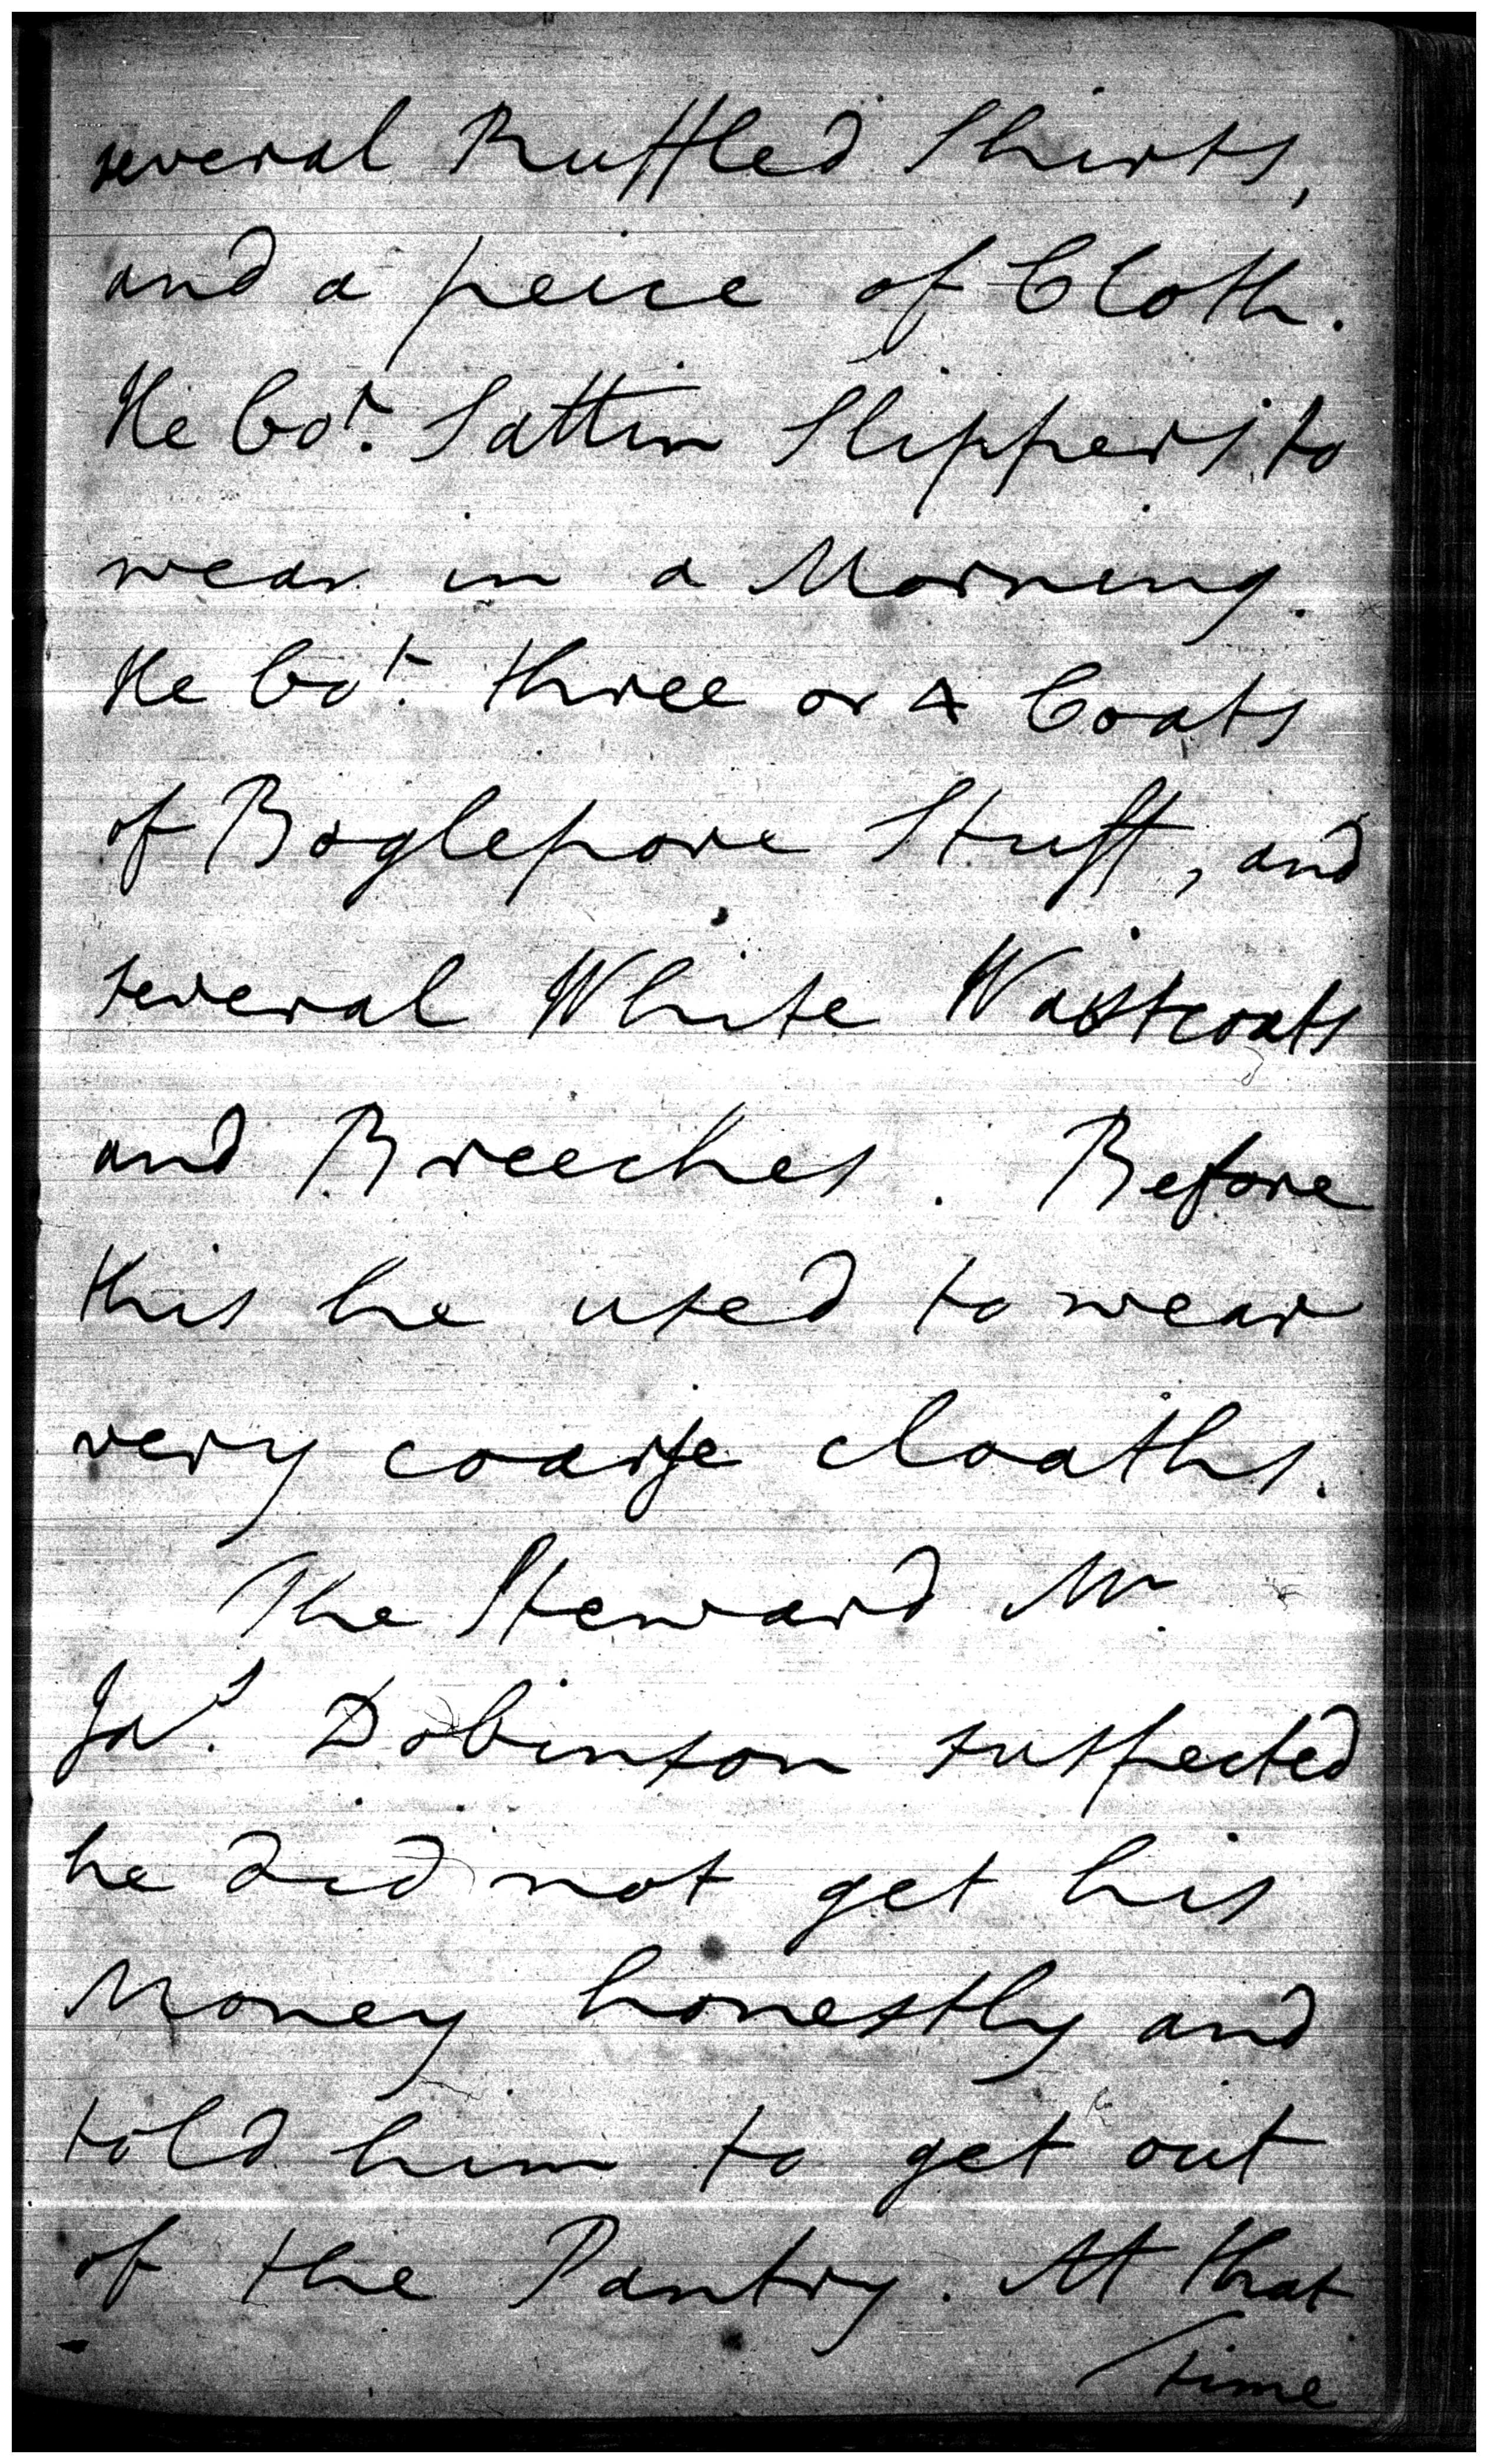 several Ruffled Shirts,
and a peice of Cloth.
He bo.t Sattin Slippers to
wear in a Morning.
He bo.t three or 4 Coats
of Boglepore Stuff, and
several White Waistcoats
and Breeches. Before
this he used to wear
very coarse cloaths.
The Steward Mr.
Jas. Dobinson suspected
he did not get his
Money honestly and
told him to get out
of the Pantry. At that
time